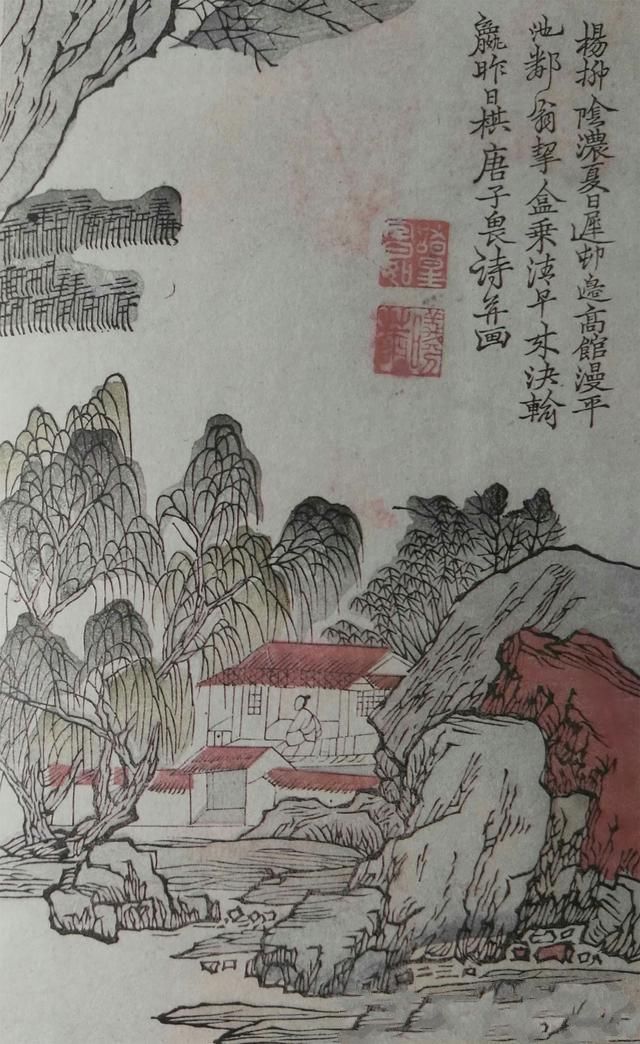 楊柳陰濃夏日遲邨邊高館漫平
池鄰翁挈盒乘清早來決輸
贏昨日棋唐子畏詩并画